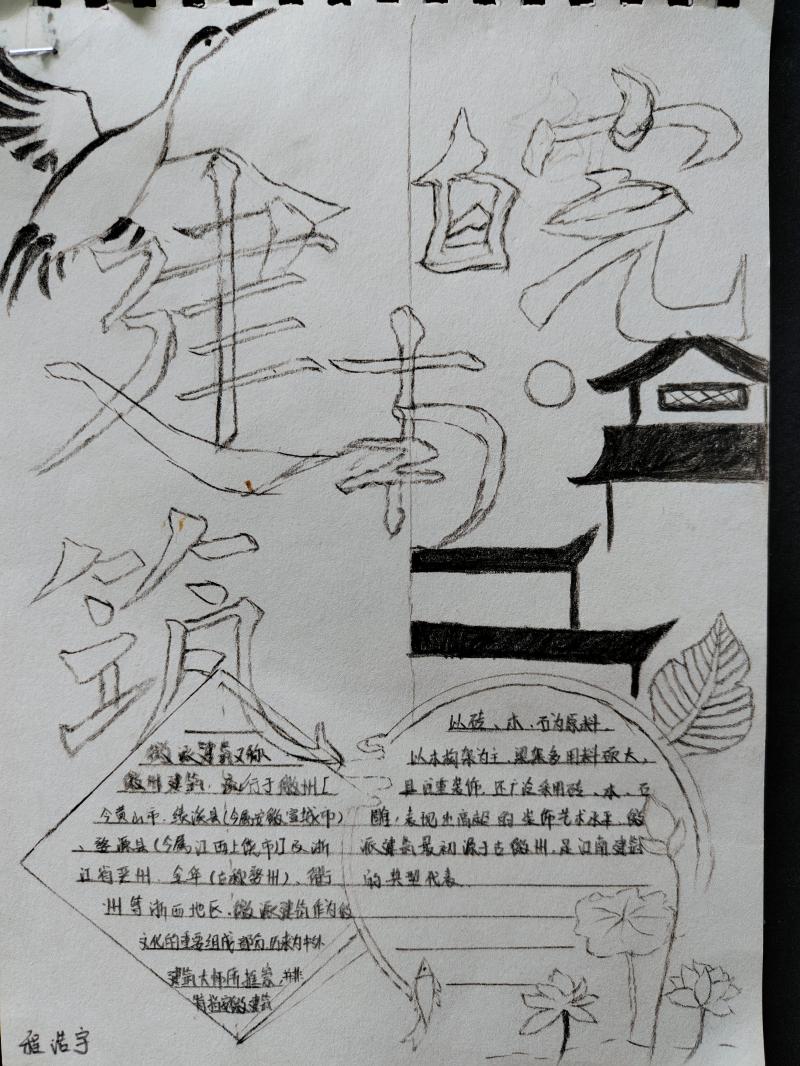 皖
南
建
筑
徽派建筑又称
徽州建筑，流行于徽州[
今黄山市、绩溪县(今属安徽宣城市)
、婺源县(今属江西上饶市)]及浙
江省严州、金华(古称婺州)、衢
州等浙西地区，徽派建筑作为徽
文化的重要组成部分，历来为中外
建筑大师所推崇，并非
特指安徽建筑
以砖、木、石为原料，
以木构架为主，梁架多用料硕大，
且注重装饰，还广泛采用砖、木、石
雕，表现出高超的装饰艺术水平，徽
派建筑最初源于古徽州，是江南建筑
的典型代表
程浩宇